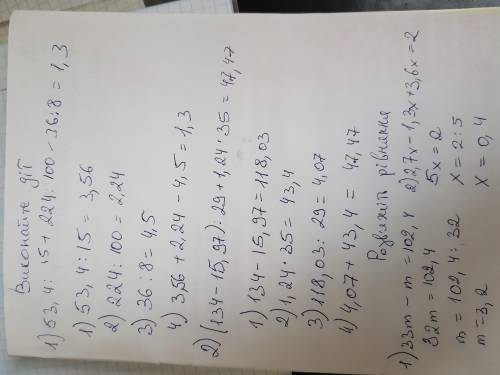 Виконайте дії
1) 53,4 : 15 + 224 : 100 - 36 : 8 = 1,3
1) 53,4 : 15 = 3,56
2) 224 : 100 = 2,24
3) 36 : 8 = 4,5
4) 3,56 + 2,24 - 4,5 = 1,3
2) (134 - 15,97) : 29 + 1,24 · 35 = 47,47
1) 134 - 15,97 = 118,03
2) 1,24 · 35 = 43,4
3) 118,03 : 29 = 4,07
4) 4,07 + 43,4 = 47,47
Розвяжіть рівняння
1) 33m - m = 102,4 2) 2,7x - 1,3x + 3,6x = 2
32m = 102,4 5x = 2
m = 102,4 : 32 x = 2 : 5
m = 3,2 x = 0,4